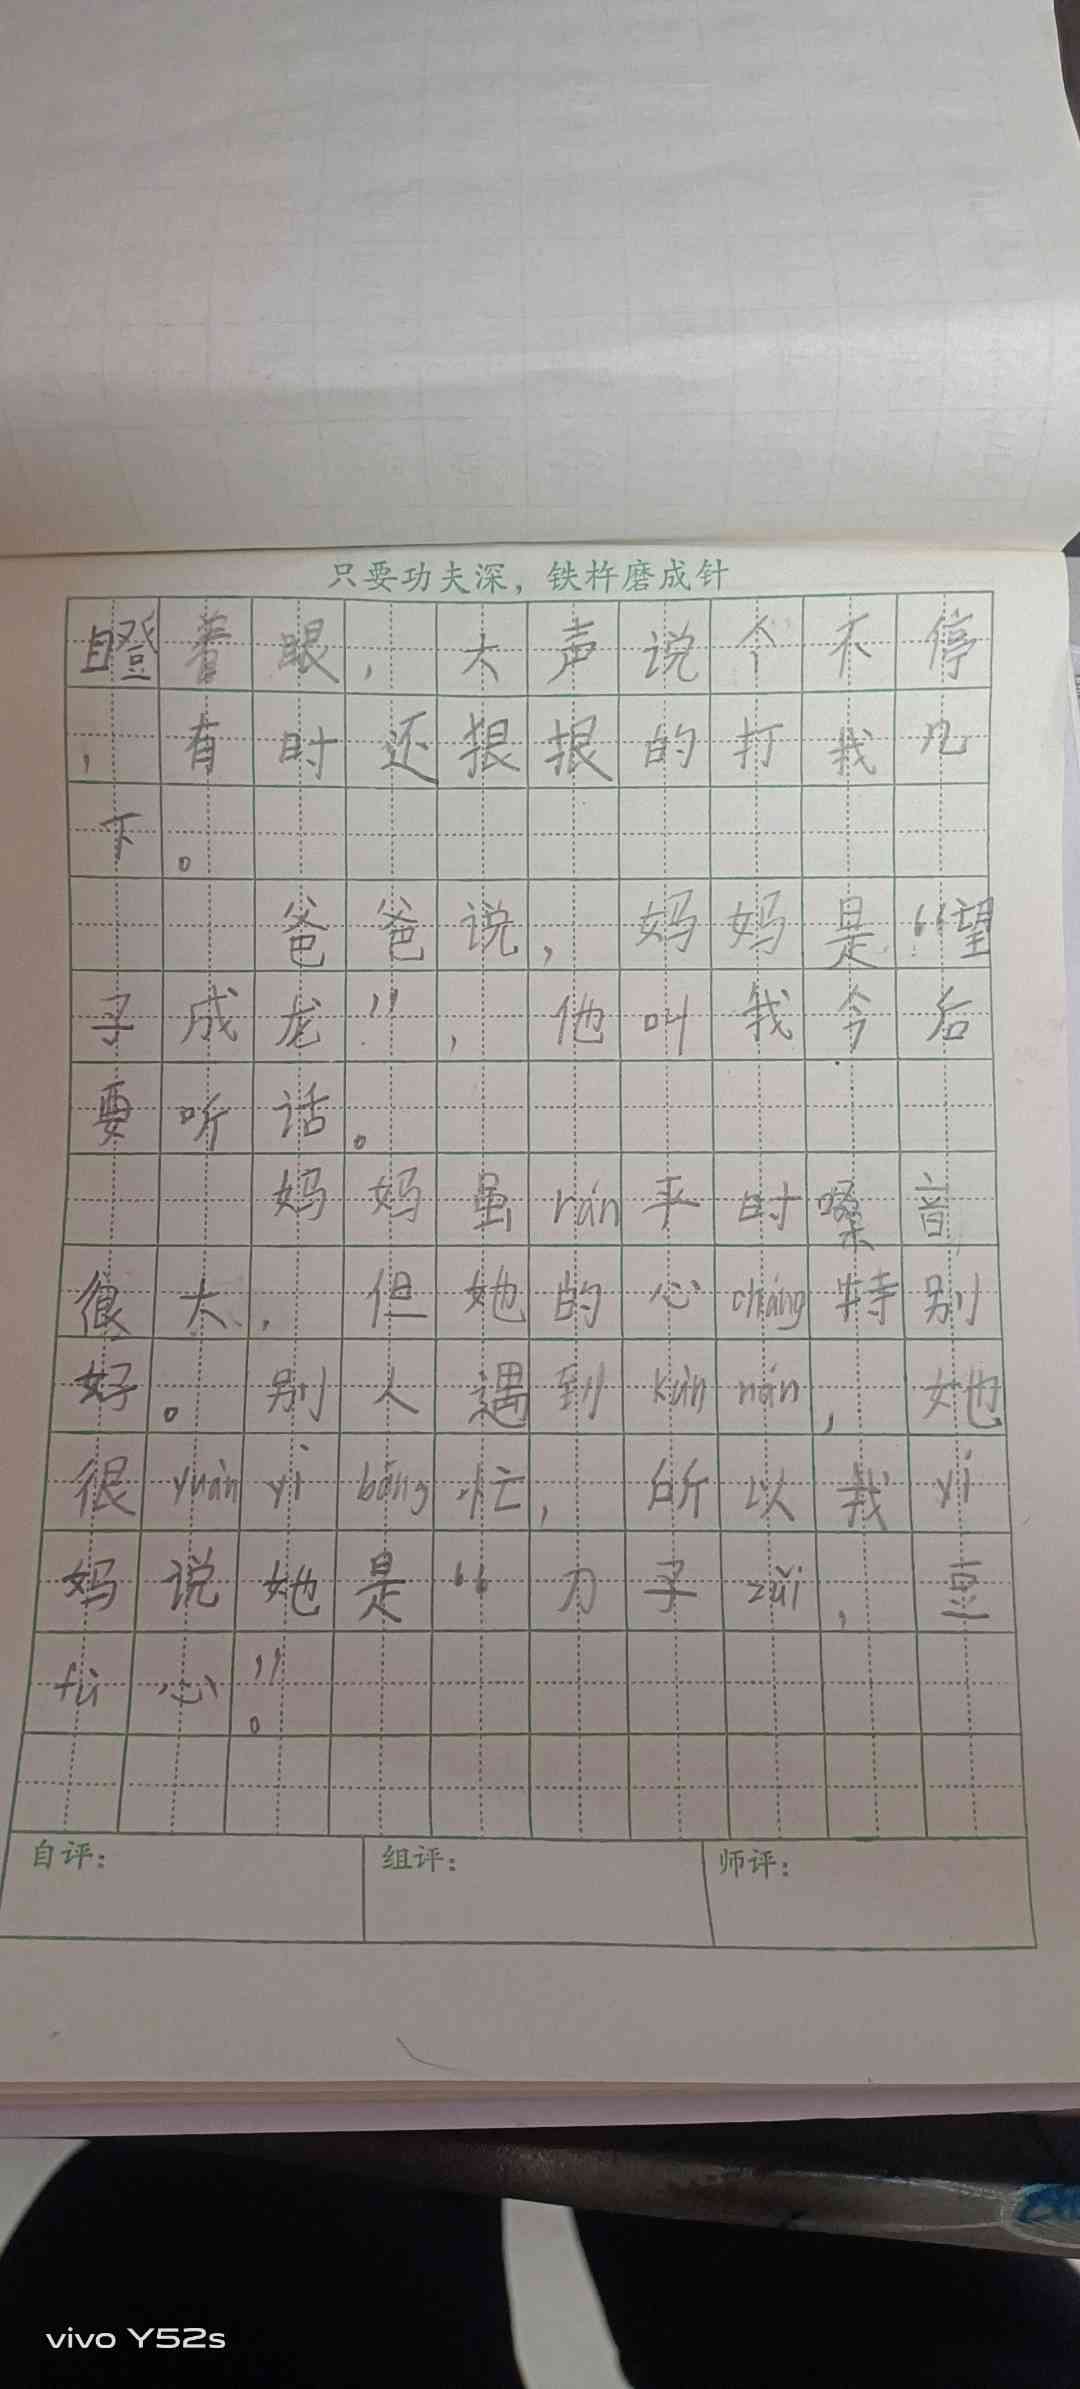 只要功夫深，铁杵磨成针
瞪着眼，大声说个不停
，有时还狠狠的打我几
下。
爸爸说，妈妈是“望
子成龙”，他叫我今后
要听话。
妈妈虽rán平时嗓音
很大，但她的心cháng特别
好。别人遇到kùn nán，她
很yuàn yì bāng忙，所以我yí
妈说她是“刀子zuǐ，豆
fǔ心”。
自评：
组评：
师评：
vivo Y52s